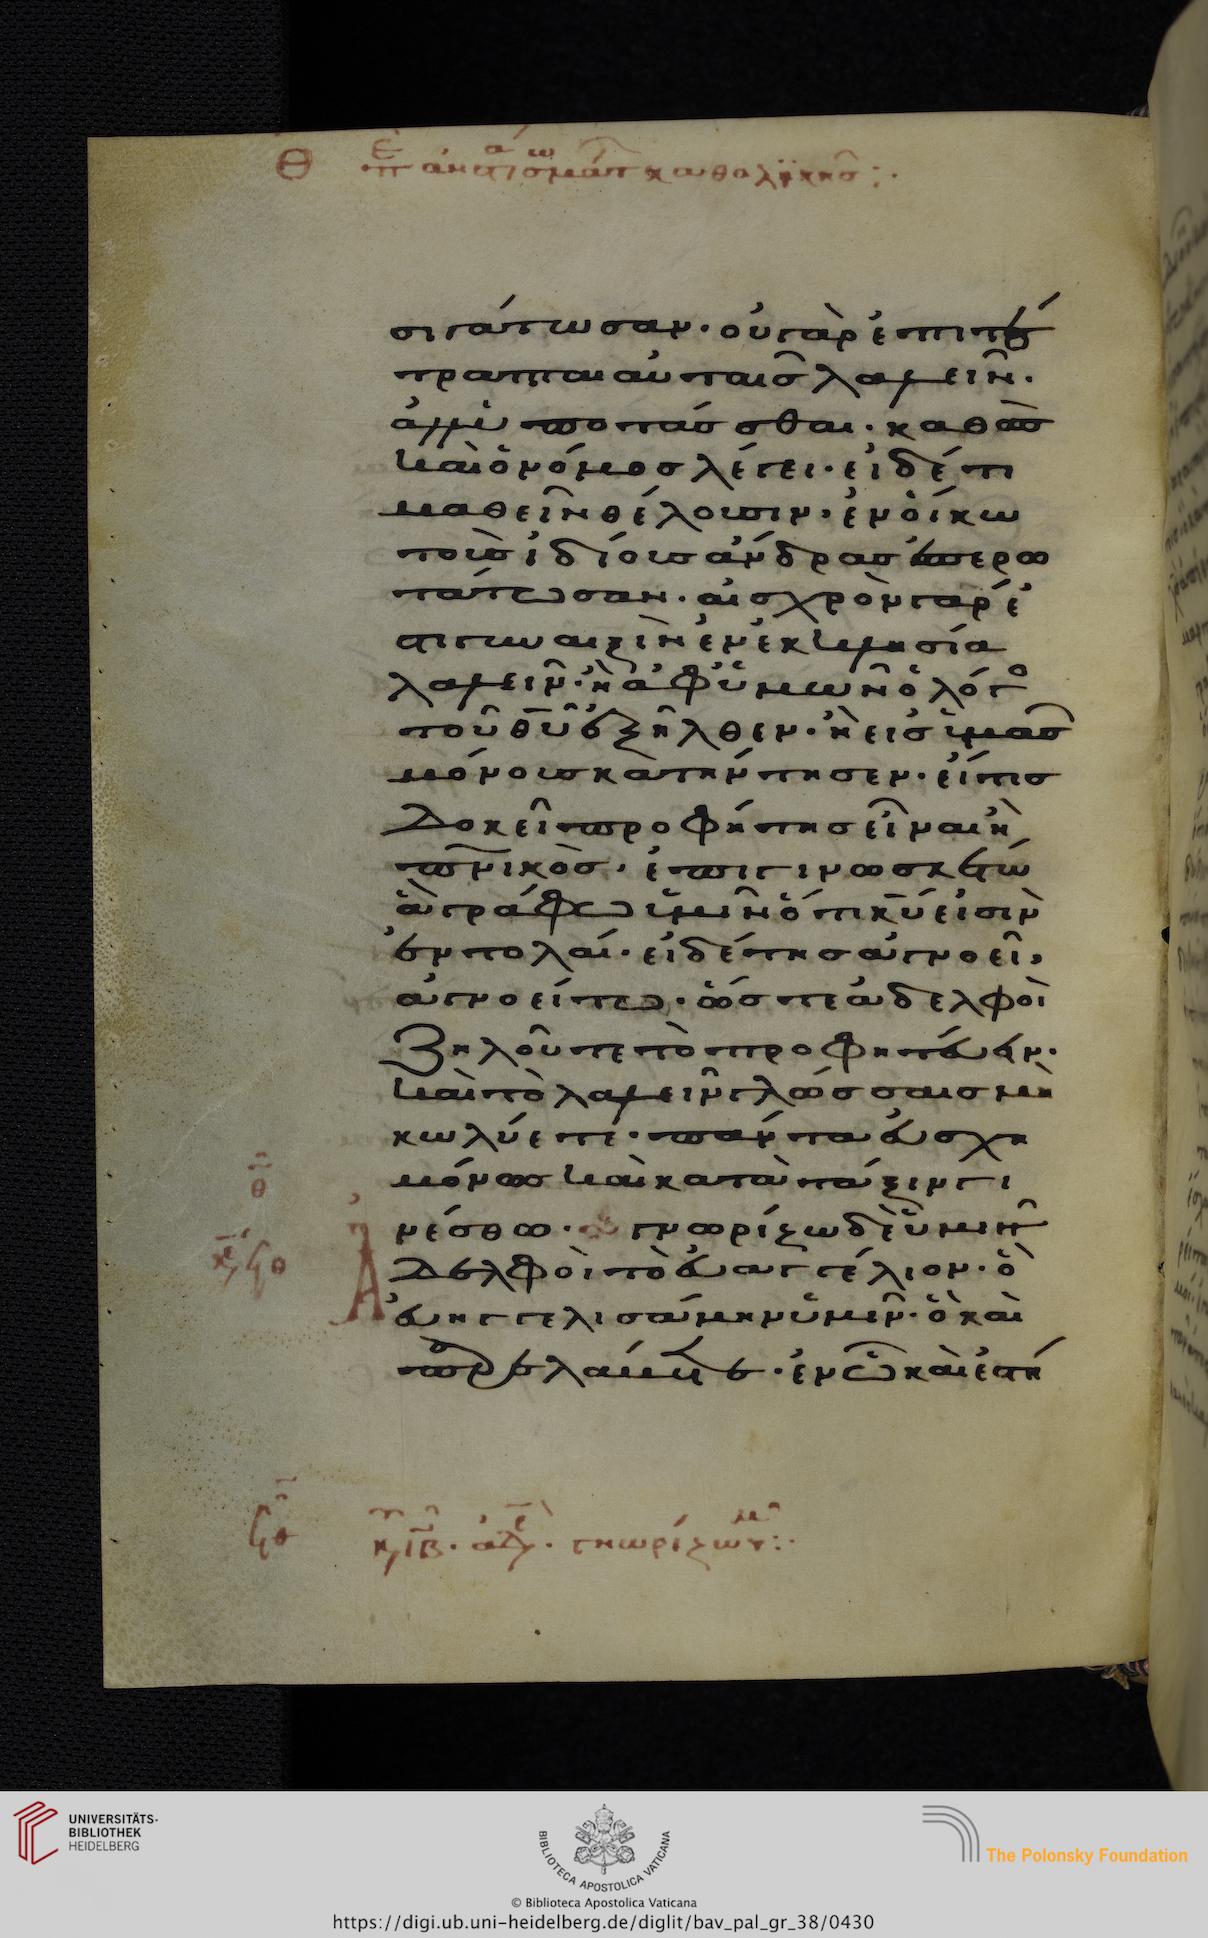 Θ
σιγάτωσαν· οὐ γὰρ ἐπιτέ
τραπται αὐταῖσ λαλεῖν·
ἀλλ' ὑποτάσσθαι· καθὼσ
καὶ ὁ νόμοσ λέγει· εἰ δέ τι
μαθεῖν θέλουσιν· ἐν οἴκω
τοῖσ ἰδίοισ ἄνδρασ ἐπερω
τάτωσαν· αἰσχρὸν γάρ ἐ
στι γυναιξὶν ἐν ἐκκλησία
λαλεῖν· ἢ ἀφ' ὑμῶν ὁ λόγο
τοῦ θῦ ἐξῆλθεν· ἢ εἰσ ὑμᾶσ
μόνουσ κατήντησεν· εἴ τισ
δοκεῖ προφήτησ εἶναι ἢ
πνικὸσ· ἐπιγινωσκέτω
ἃ γράφω ὑμῖν ὅτι κῦ εἰσὶν
ἐντολαί· εἰ δέ τησ ἀγνοεῖ,
ἀγνοείτω· ὥστε ἀδελφοὶ
ζηλοῦτε τὸ προφητεύειν·
καὶ τὸ λαλεῖν γλώσσαισ μὴ
κωλύετε· πάντα εὐσχη
μόνωσ καὶ κατὰ τάξιν γι
νέσθω· γνωρίζω δὲ ὑμῖν
ἀδελφοὶ τὸ εὐαγγέλιον· ὃ
εὐηγγελισάμην ὑμῖν· ὃ καὶ
παρελάβετε· ἐν ὧ καὶ ἑστή
UNIVERSITÄTS-
BIBLIOTHEK
HEIDELBERG
BIBLIOTECA APOSTOLICA VATICANA
The Polonsky Foundation
© Biblioteca Apostolica Vaticana
https://digi.ub.uni-heidelberg.de/diglit/bav_pal_gr_38/0430